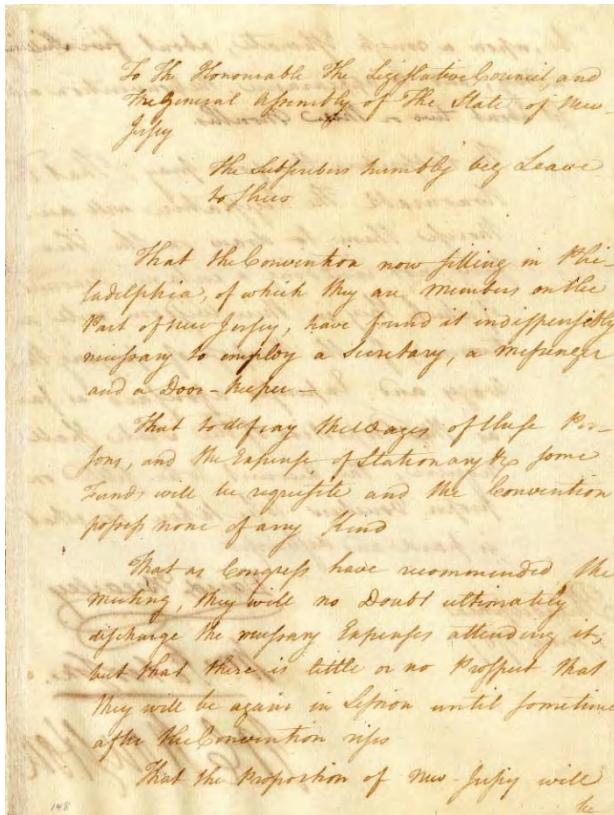 To The Honourable The Legislative Council, and
The General Assembly of The State of New-
Jersey
The Subscribers humbly beg Leave
to shew
That the Convention now sitting in Phi-
ladelphia, of which they are members on the
Part of New Jersey, have found it indispensibly
necessary to employ a Secretary, a Messenger
and a Door-keeper—
That to defray the Wages of these Per-
sons, and the Expense of Stationary &c some
Funds will be requisite and the Convention
possess none of any Kind
That as Congress have recommended the
meeting, they will no Doubt ultimately
discharge the necessary Expenses attending it,
but that there is little or no Prospect that
they will be again in Session until sometime
after the Convention rises
That the Proportion of New-Jersey will
be
148